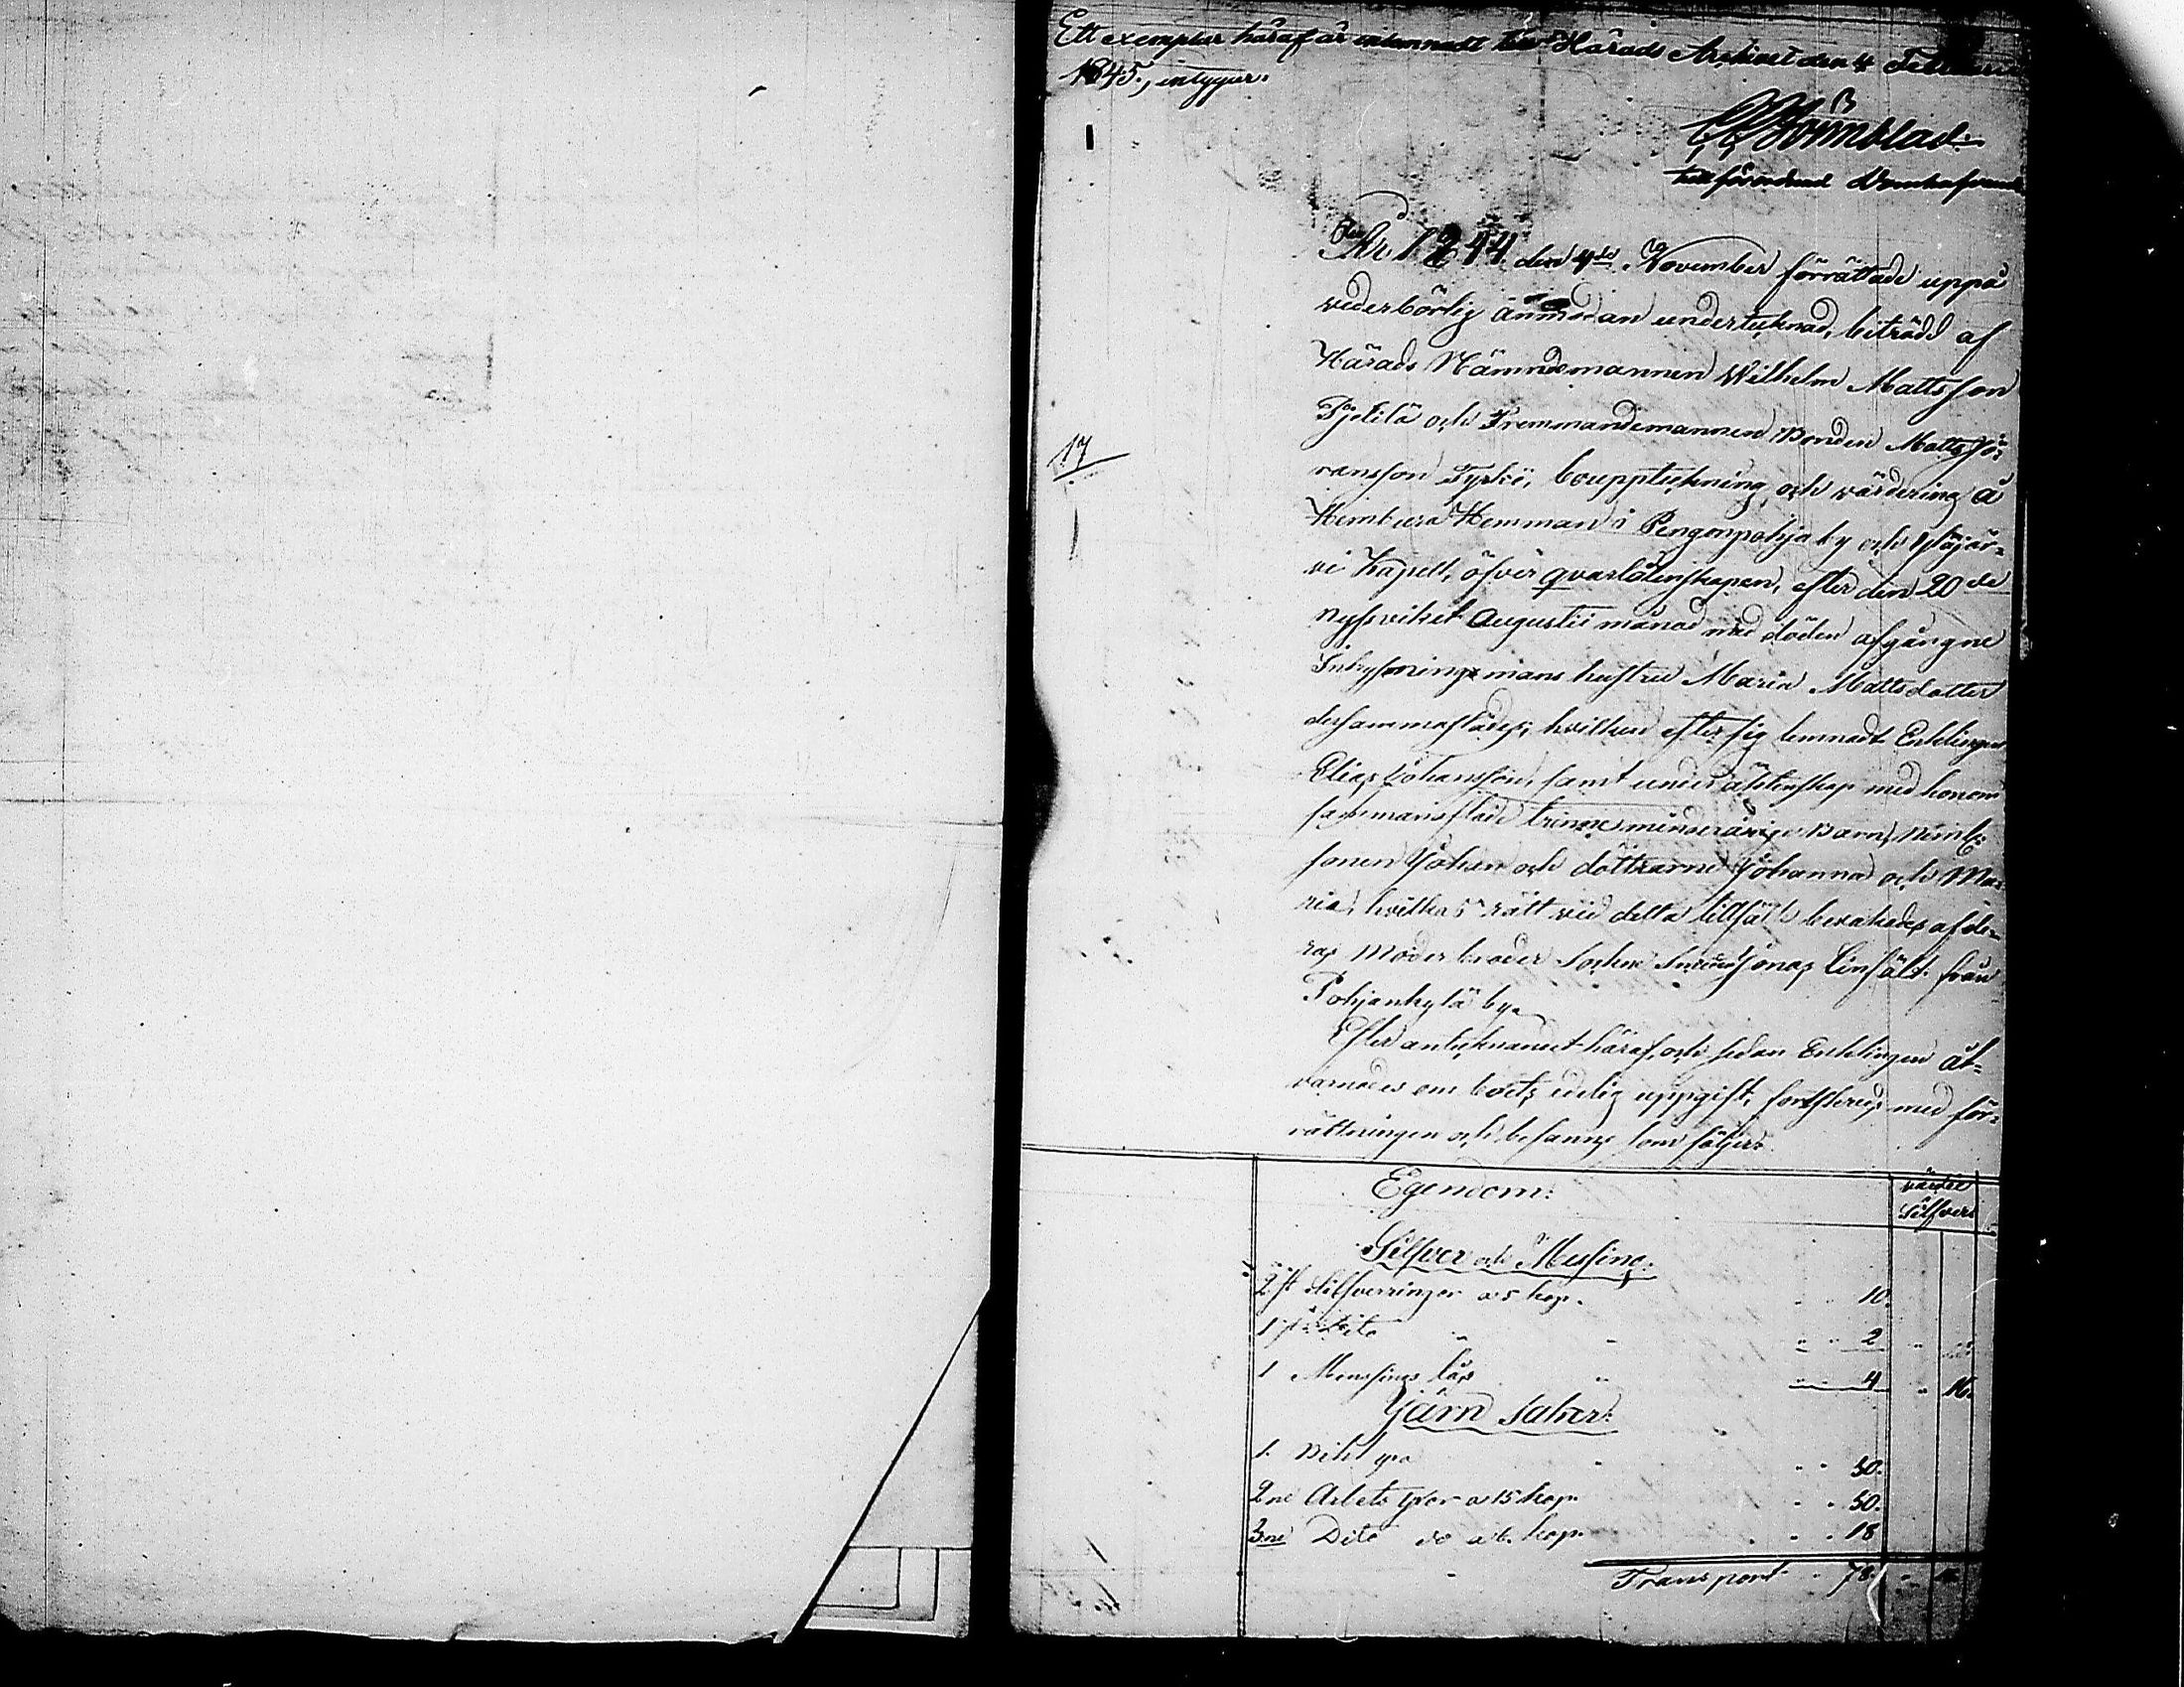 Ett exemplar häraf är inlemnadt till Härads Arkivet den 4 Februarii
1845., intygar.
till förordnad Domhafvande
17
År 1844 den 4de November förrättade uppå
vederbörlig anmodan undertecknad, biträdd af
Härads Nämndemannen Wilhelm Mattsson
Pjetilä och Fremmandemannen Bonden Matts Jö-
ransson Tyrkö, bouppteckning och värdering å
Hemman i Pengonpohja by och Yläjär-
vi Kapell, öfver qvarlåtenskapen, efter den 20de
nyssvikst Augustii månad med döden afgångne
Inhysningsmans hustru Maria Mattsdotter
dersammastädes, hvilken efter sig lemnadt Enklingen
Elias Johansson, samt under äktenskap med honom
sammanaflade trenne minderårige Barn, neml:
sonen Johan och döttrarne Johanna och Ma-
ria, hvilkas rätt vid detta tillfälle bevakades af de-
ras Moderbroder Sockne Jonas Linfält från
Pohjankylä by.
Efter antecknandet häraf, och sedan Enklingen åt-
varnades om boets edelig uppgift, fortskreds med för-
rättningen och befanns som följer:
Egendom: värde Silfver
Silfver och Messing.
2 st Silfverringar a 5 kop. " " 10.
1 st Dito " " " " 2 " "
1 Messings lås " " " 4 " 16.
Järn Saker:
1. Bilt yxa " " " 30.
2ne Arbets yxor a 15 kop. " " 30.
3ne Dito do a 6. kop. " " 18
Transport " 78. " "